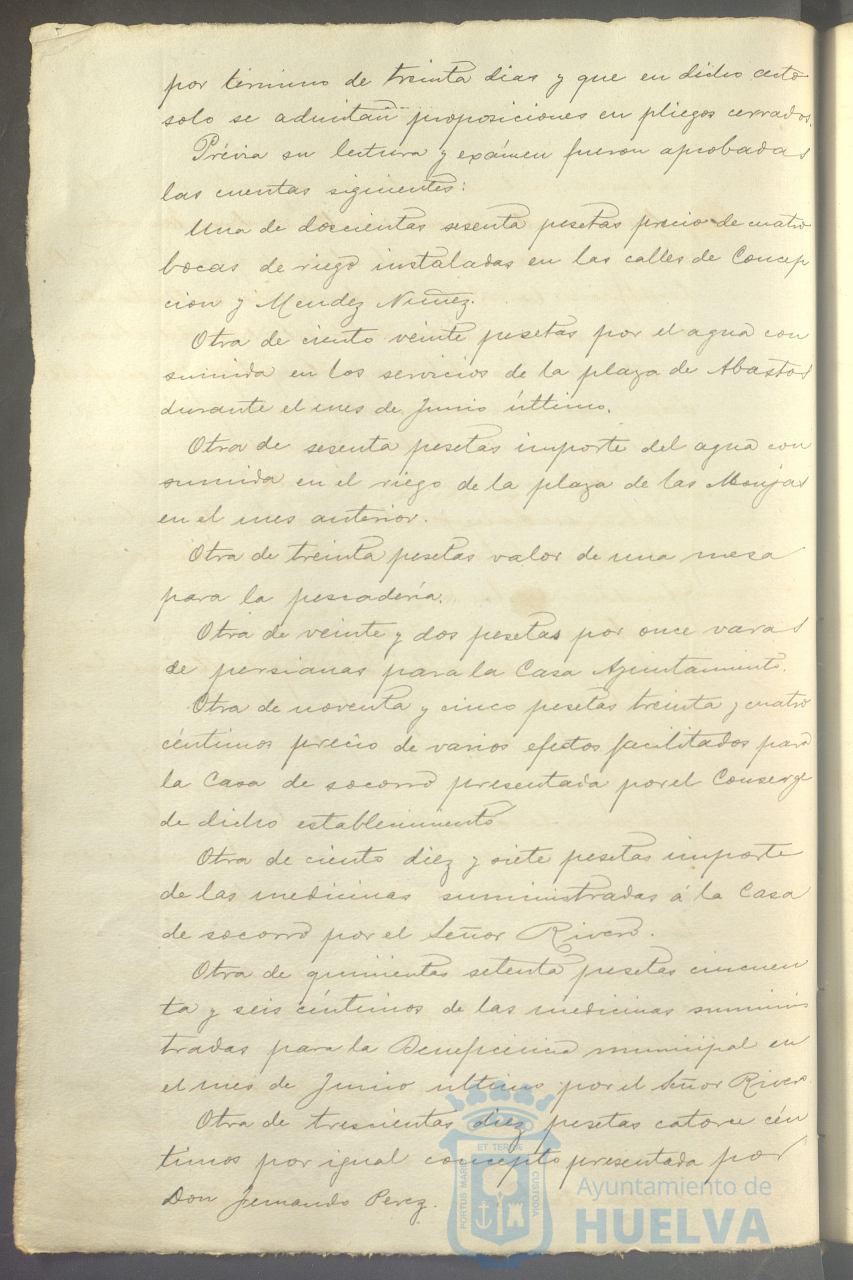 por término de treinta dias y que en dicho acto
solo se admitan proposiciones en pliegos cerrados.
Prévia su lectura y exámen fueron aprobadas
las cuentas siguientes:
Una de doscientas sesenta pesetas precio de cuatro
bocas de riego instaladas en las calles de Concep
cion y Mendez Nuñez.
Otra de ciento veinte pesetas por el agua con
sumida en los servicios de la plaza de Abastos
durante el mes de Junio último.
Otra de sesenta pesetas importe del agua con
sumida en el riego de la plaza de las Monjas
en el mes anterior.
Otra de treinta pesetas valor de una mesa
para la pescadería.
Otra de veinte y dos pesetas por once varas
de persianas para la Casa Ayuntamiento.
Otra de noventa y cinco pesetas treinta y cuatro
céntimos precio de varios efectos facilitados para
la Casa de socorro presentada por el Conserge
de dicho establecimiento
Otra de ciento diez y siete pesetas importe
de las medicinas suministradas á la Casa
de socorro por el Señor Rivero.
Otra de quinientas setenta pesetas cincuen
ta y seis céntimos de las medicinas suminis
tradas para la Beneficencia municipal en
el mes de Junio ultimo por el Señor Rivero
Otra de trescientas diez pesetas catorce cén
timos por igual concepto presentada por
Don Fernando Perez.
ET TERRE
PORTUS MARIS
CUSTODIA
Ayuntamiento de
HUELVA